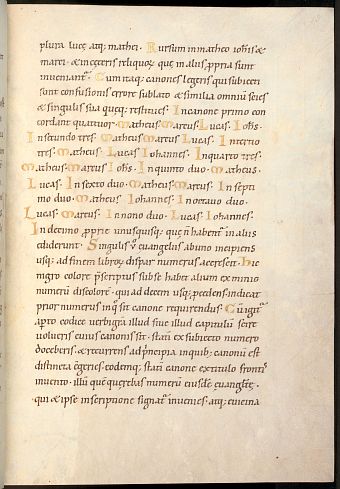 plura lucę atq; mathei. Rursum in matheo iohis &
marci. & in cęteris reliquorꝫ quę in aliis ppria sunt
inveniant̃. Cum itaq; canones legeris qui subiecti
sunt confusionis errore sublato & similia omniũ scies
& singulis sua quęq; restitues. In canone primo con
cordant quatuor. Matheus Marcus. Lucas. Iohs.
In secundo tres. Matheus Marcus Lucas. In tertio
tres. Matheus. Lucas Iohannes. In quarto tres.
Matheus. Marcus Iohs. In quinto duo. Matheus.
Lucas. In sexto duo. Matheus. Marcus. In septi
mo duo. Matheus Iohannes. In octavo duo.
Lucas Marcus. In nono duo. Lucas Iohannes.
In decimo pprie unusquisq; quę ñ habent̃ in aliis
ediderunt. Singulis ṽ euangeliis ab uno incipiens
usq; ad finem librorꝫ dispar numerus accrescit. Hic
nigro colore pscriptus sub se habet alium ex minio
numerũ discolorẽ. qui ad decem usq; pcedens. indicat
prior numerus in q̃ sit canone requirendus. Cũ igit̃
apto codice verbi gra illud sive illud capitulũ scire
volueris cuius canonis sit. stati ex subiecto numero
doceberis. & recurrens ad principia in quib; canonũ est
distincta cgeries. eodemq; stati canone ex titulo frontis
invento. illũ quẽ querebas numerũ eiusdẽ euangłtę.
qui & ipse inscriptione signat̃ invenies. atq; e vicina